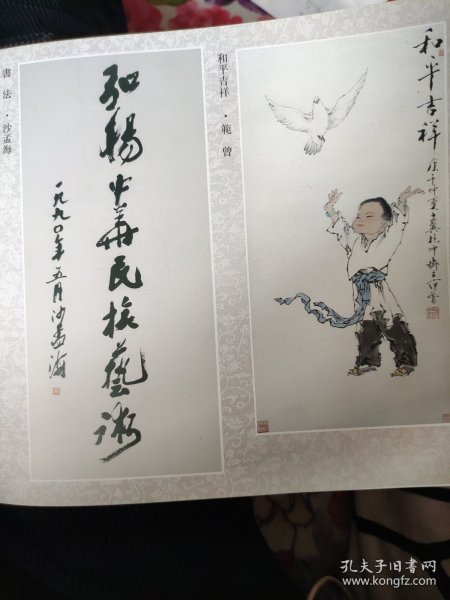 書法・沙孟海
弘揚中華民族藝術
一九九〇年五月沙孟海
和平吉祥・範曾
和平吉祥
孔夫子旧书网
www.kongfz.com